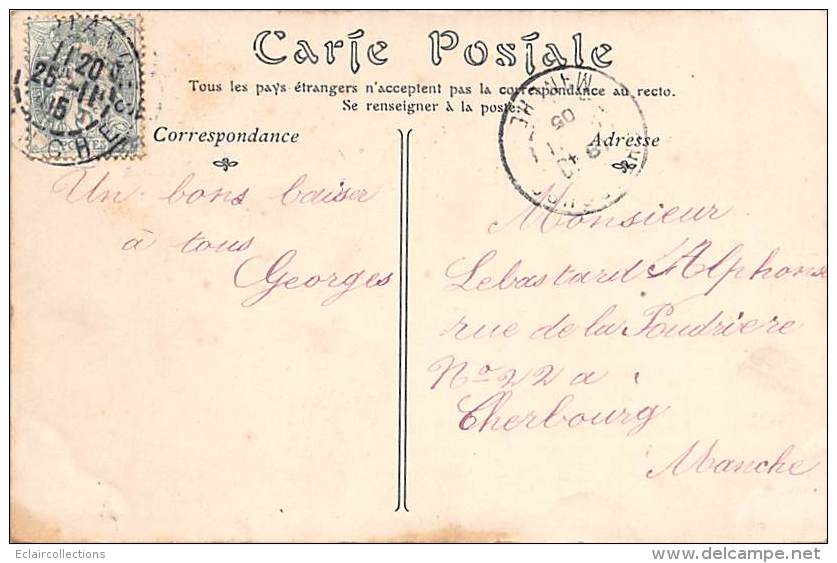 Carte Postale
Tous les pays étrangers n'acceptent pas la correspondance au recto.
Se renseigner à la poste.
Correspondance
Adresse
11 20
25 - 11
05
05
Un bons baiser
à tous
Georges
Monsieur
Lebastard Alphonse
rue de la Poudriere
No 22 a
Cherbourg
Manche
Eclaircollections
www.delcampe.net